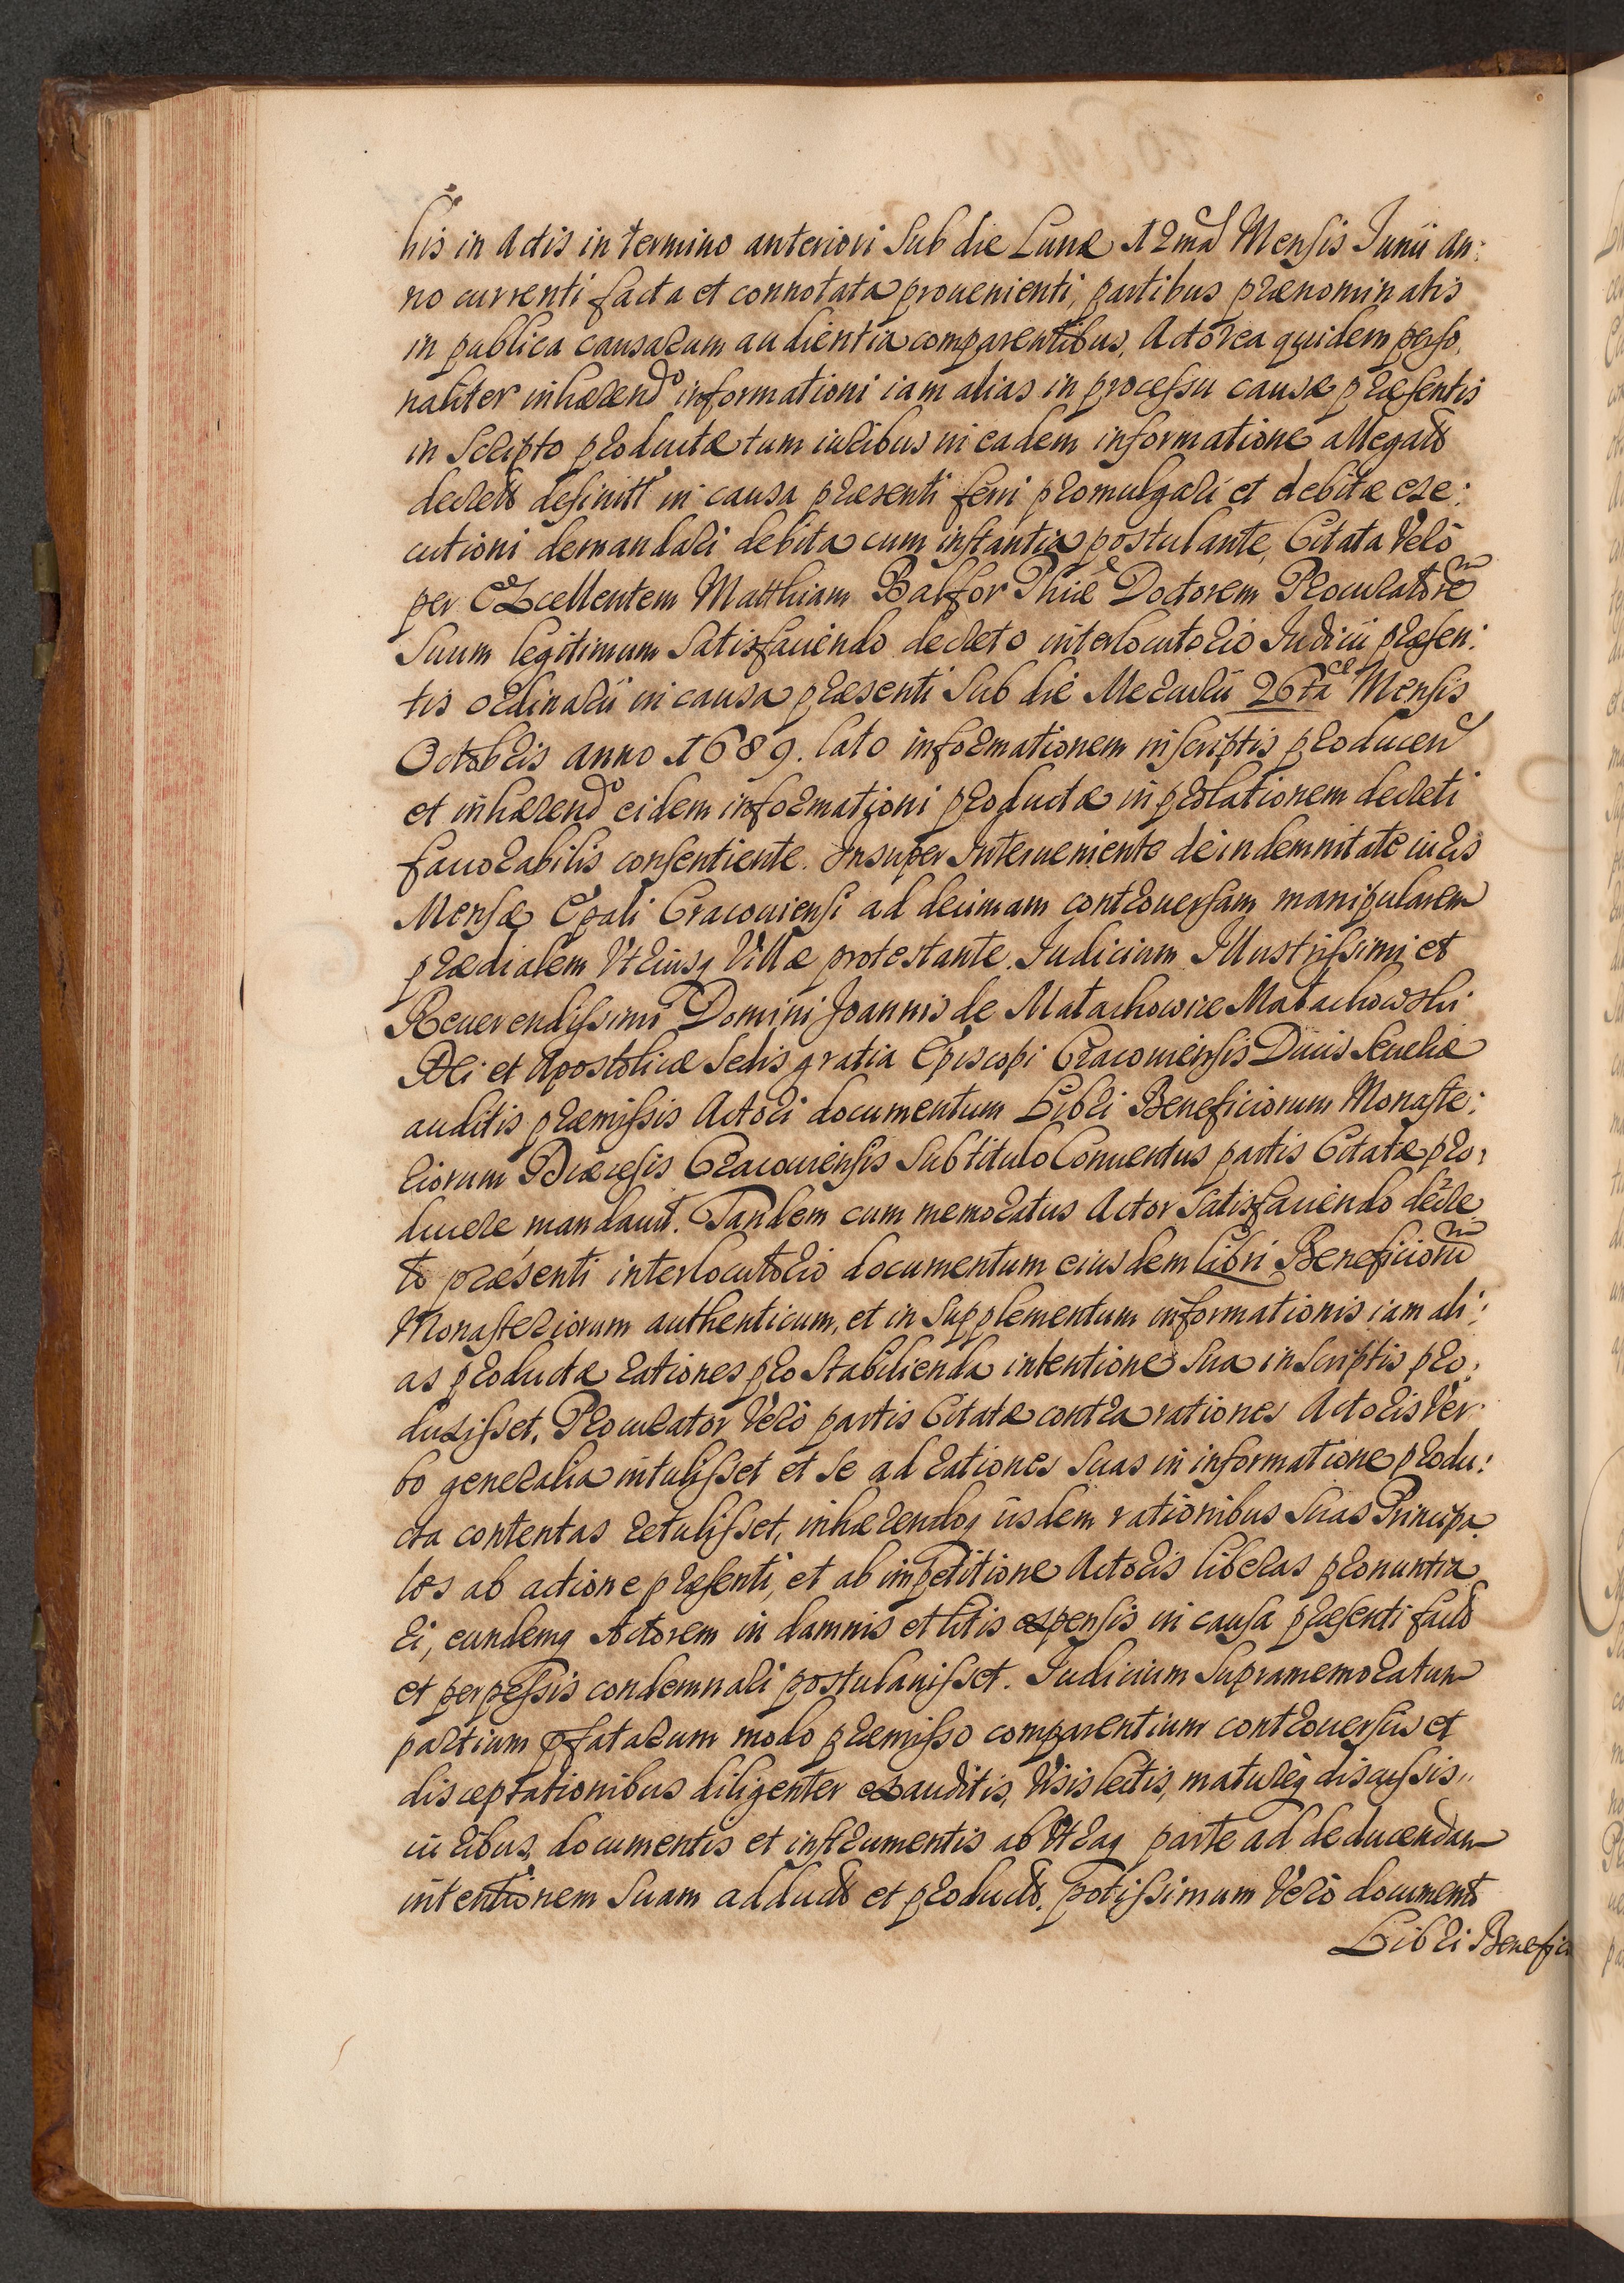 his in Actis in termino anteriori Sub die Lunæ 12ma Mensis Junii An:
no currenti facta et connotata prouenienti, partibus prænominatis
in publica causarum audientia comparentibus, Actorea quidem perso,
naliter inhærendo informationi iam alias in processu causæ præsentis
in Scripto productæ tum iuribus in eadem informatione allegatis
decretū definitt in causa præsenti ferri promulgari et debitæ exe:
cutioni demandari debita cum instantia postulante, Citata Verò
per Excellentem Matthiam Balfor Phiæ Doctorem Procuratorem
Suum legitimum Satisfaciendo decreto interlocutorio Judicii præsen:
tis ordinarii in causa præsenti Sub die Mercurii 26ta Mensis
Octobris anno 1689. lato informationem in scriptis producen
et inhærendo eidem informationi productæ in prolationem decreti
fauorabilis consentiente. Insuper Interueniente de indemnitate iuris
Mensæ Epali Cracouiensi ad decimam controuersam manipularem
prædialem Vtriusq Villæ protestante. Judicium Illustrissimi et
Reuerendissimi Domini Joannis de Małachowice Małachowski
Dei et Apostolicæ Sedis gratia Episcopi Cracouiensis Ducis Seueriæ
auditis præmissis Actori documentum Libri Beneficiorum Monaste:
riorum Diæcesis Cracouiensis Sub titulo Conuentus partis Citatæ pro:
ducere mandauit. Tandem cum memoratus Actor Satisfaciendo decre
to præsenti interlocutorio documentum eiusdem libri Beneficiorū
Monasteriorum authenticum, et in Supplementum informationis iam ali:
as productæ rationes pro Stabilienda intentione Sua in Scriptis pro:
duxisset, Procurator Verò partis Citatæ contra rationes Actoris Ver
bo generalia intulisset et Se ad rationes Suas in informatione produ:
cta contentas retulisset, inhærendoq iisdem rationibus Suas Principa
les ab actione præsenti, et ab impetitione Actoris liberas pronuntia
ri, eundemq Actorem in damnis et litis expensis in causa præsenti factis
et perpessis condemnari postulauisset. Judicium Supramemoratum
partium pfatarum modo præmisso comparentium controuersiis et
disceptationibus diligenter exauditis, Visis lectis, maturèq discussis
iuribus, documentis et instrumentis ab Vtraq parte ad deducendam
intentionem Suam adductis et productis. potissimum Verò documento
Libri Benefici